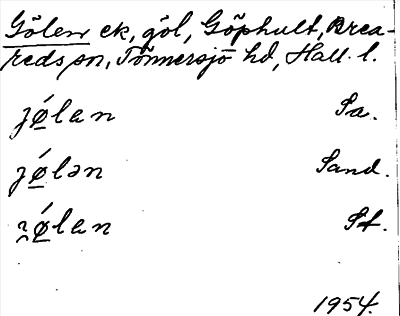 Gölen ek, göl, Göphult, Brea-
reds sn, Tönnersjö hd, Hall. l.
jǿ̲lan Sa.
jǿ̲lən Sand.
ʒǿ̲lan St.
1954.